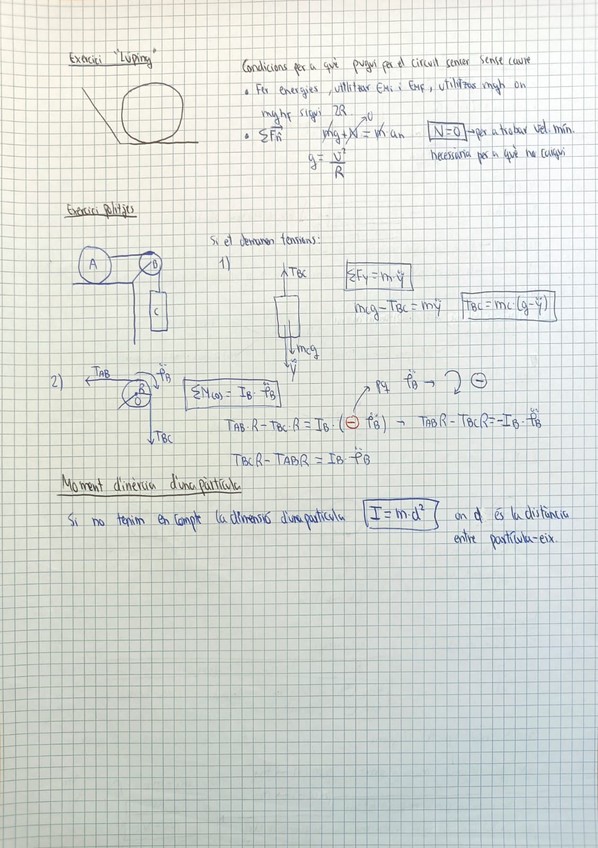 Exercici "Luping"
Condicions per a què pugui per el circuit sencer sense caure
• Fer energies, utilitzar Emi i Emf, utilitzar mgh on
mghf sigui 2R
• ΣFn mg + N = m an N=0 → per a trobar vel. mín.
0
g = v²/R necessària per a què no caigui
Exercici Politjes
Si et demanen tensions:
1)
A B C
TBC
mcg
ÿ
ΣFy = m·ÿ
mcg - TBC = mÿ TBC = mc·(g-ÿ)
2) TAB φ̈B
R
O
TBC
ΣM(O) = IB·φ̈B
pq φ̈B → ⊖
TAB·R - TBC·R = IB·(⊖ φ̈B) → TABR - TBCR = -IB·φ̈B
TBCR - TABR = IB·φ̈B
Moment d'inèrcia d'una partícula
Si no tenim en compte la dimensió d'una partícula I = m·d² on d és la distància
entre partícula-eix.